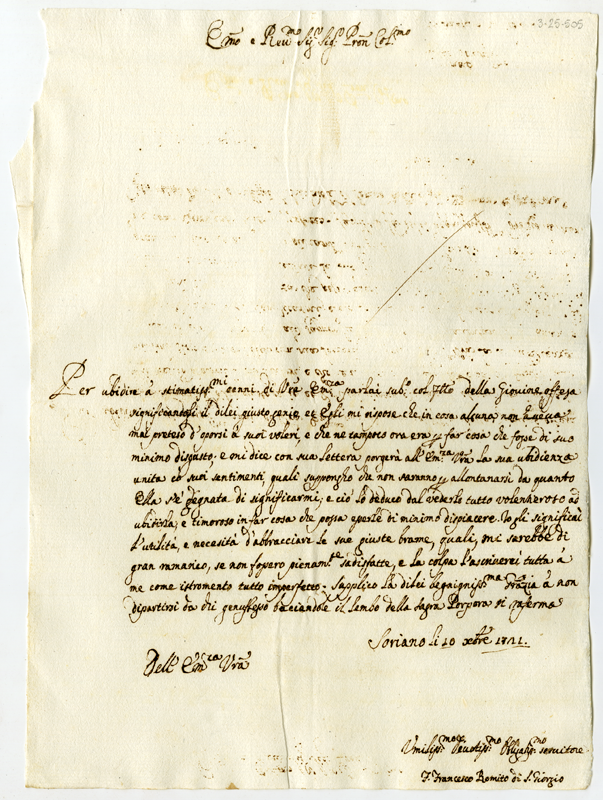 3-25-505
Emo e Reumo Sigr Sigr Pron Colmo
Per ubidire à stimatissmi cenni di Vra Emza parlai subo col della Giouine offesa
significandogli il dilei giusto genio, et Egli mi rispose che in cosa alcuna non haueua
mai preteso d'oporsi à suoi voleri, e che ne tampoco ora era p far cosa che fosse di suo
minimo disgusto, e mi dice, con sua lettera porgerà all' Emza Vra la sua ubidienza
unita cò suoi sentimenti, quali suppongho che non saranno p allontanarsi da quanto
Ella s'è degnata di significarmi, e ciò lo deduco dal vederlo tutto volenteroso ad
ubidirla, e timoroso in far cosa che possa esserle di minimo dispiacere. Io gli significai
l'utilità, e necesità d'abbracciare le sue giuste brame, quali, mi sarebbe di
gran ramarico, se non fossero pienamte sadisfatte, e la colpa l'ascriuerei tutta à
me come istromento tutto imperfetto. Supplico la dilei degnignissma Grazia à non
dipartirsi da chi genuflesso baciandole il lembo della sagra Porpora si raferma
Soriano li 10 xbre 1721.
Dell' Emza Vra
Umilissmo Deuotissmo Obligatissmo seruitore
F. Francesco Romito di S. Giorgio